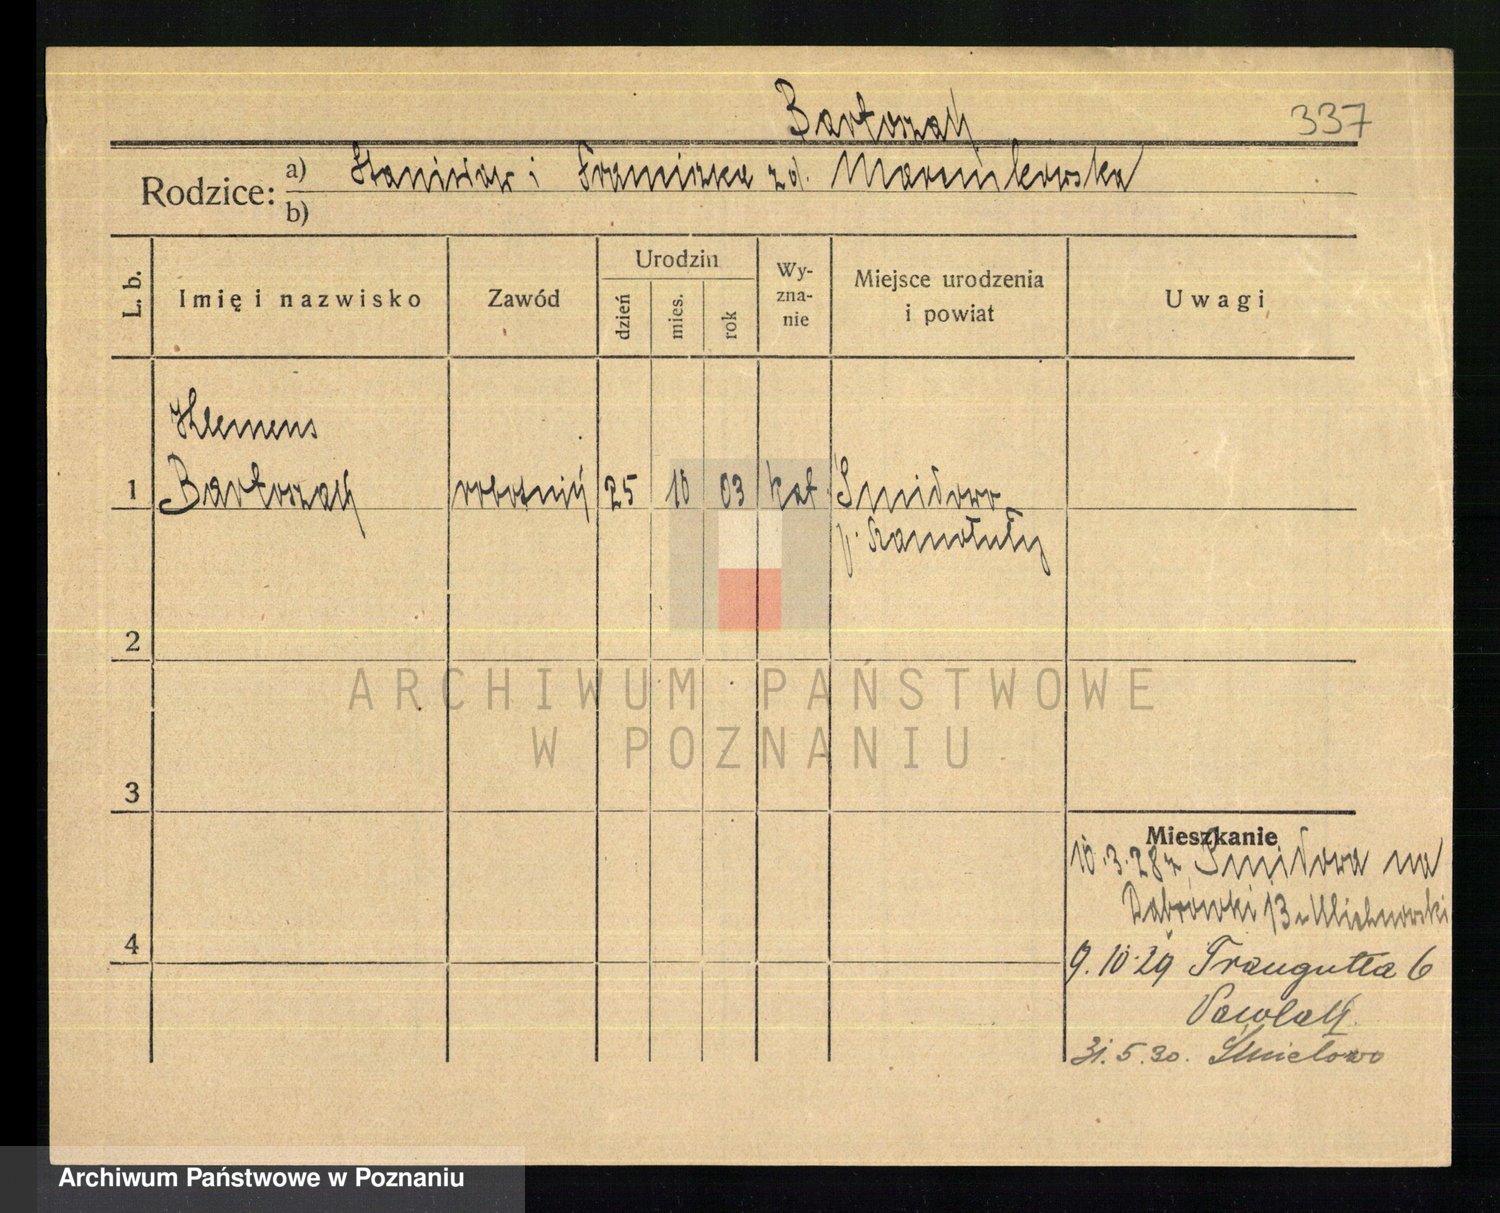 Bartoszak 337
Rodzice: a) Stanisław i Franciszka zd. Marcinkowska
b)
L. b. Imię i nazwisko Zawód Urodzin dzień mies. rok Wy-zna-nie Miejsce urodzenia i powiat Uwagi
Klemens
1 Bartoszak robotnik 25 10 03 kat Śmiłowo
p. Szamotuły
2
ARCHIWUM PAŃSTWOWE
W POZNANIU
3
Mieszkanie
10.3.28 z Śmiłowa na
Dąbrówki 13 Michnowski
4
9.10.29 Traugutta 6
Pawlak
31.5.30. Śmiełowo
Archiwum Państwowe w Poznaniu